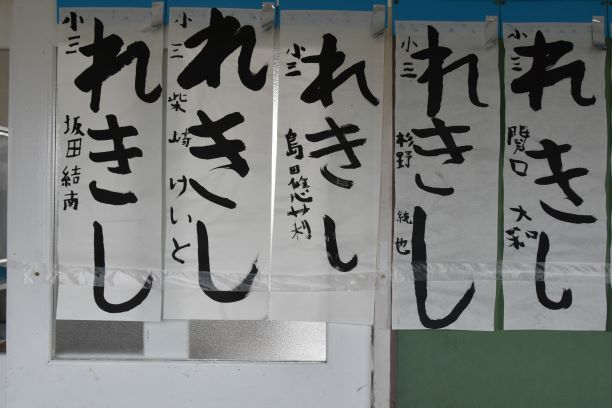 れきし
小三 関口 大和
れきし
小三 杉野 統也
れきし
小三 島田悠茉莉
れきし
小三 柴崎 けいと
れきし
小三 坂田結南